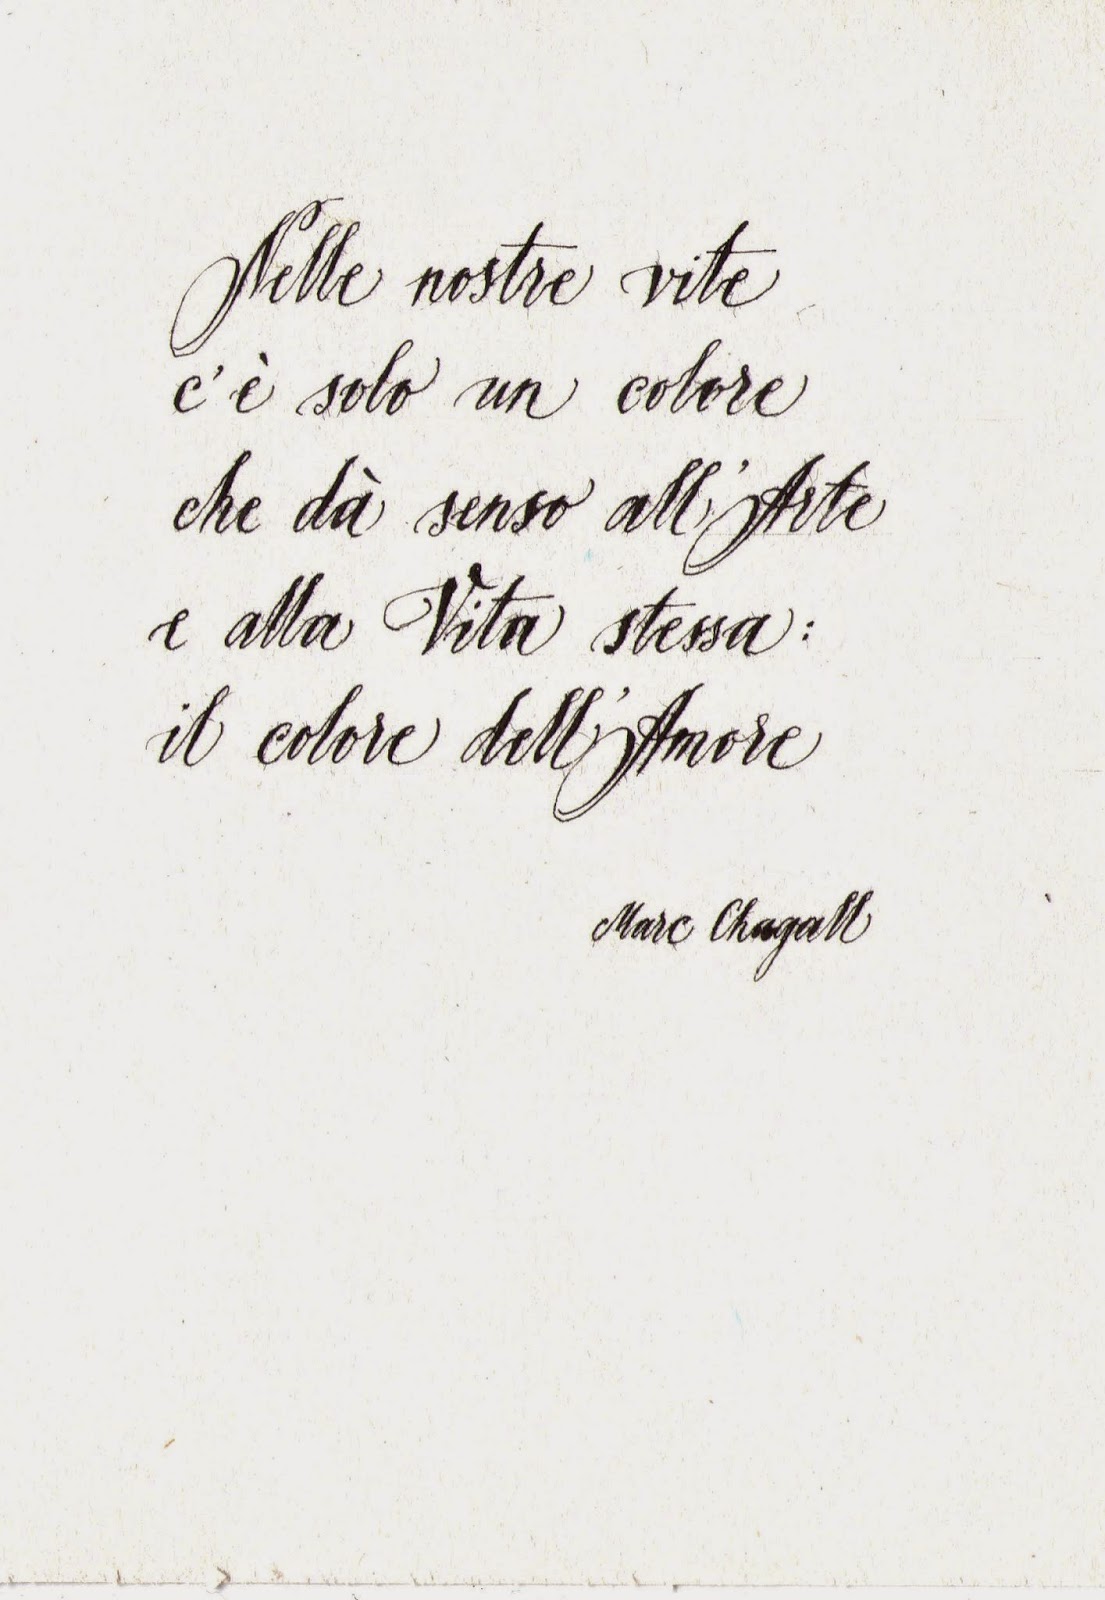 Nelle nostre vite
c'è solo un colore
che dà senso all'Arte
e alla Vita stessa:
il colore dell'Amore
Marc Chagall